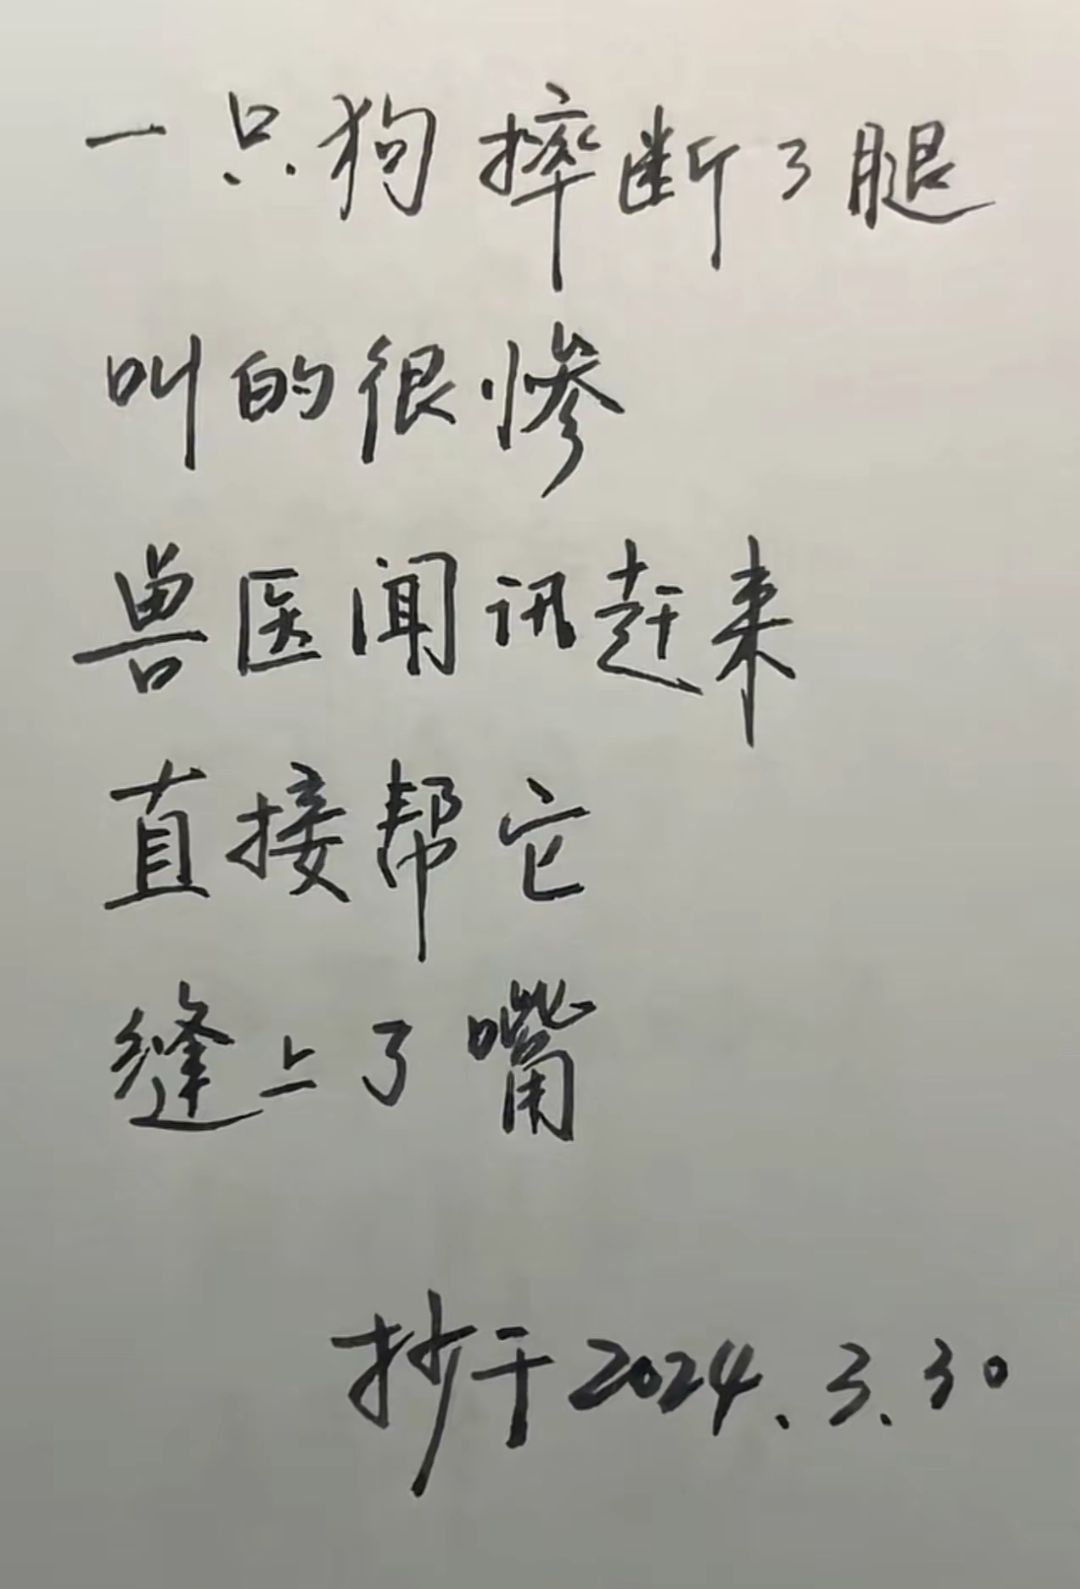 一只狗摔断了腿
叫的很惨
兽医闻讯赶来
直接帮它
缝上了嘴
抄于2024.3.30